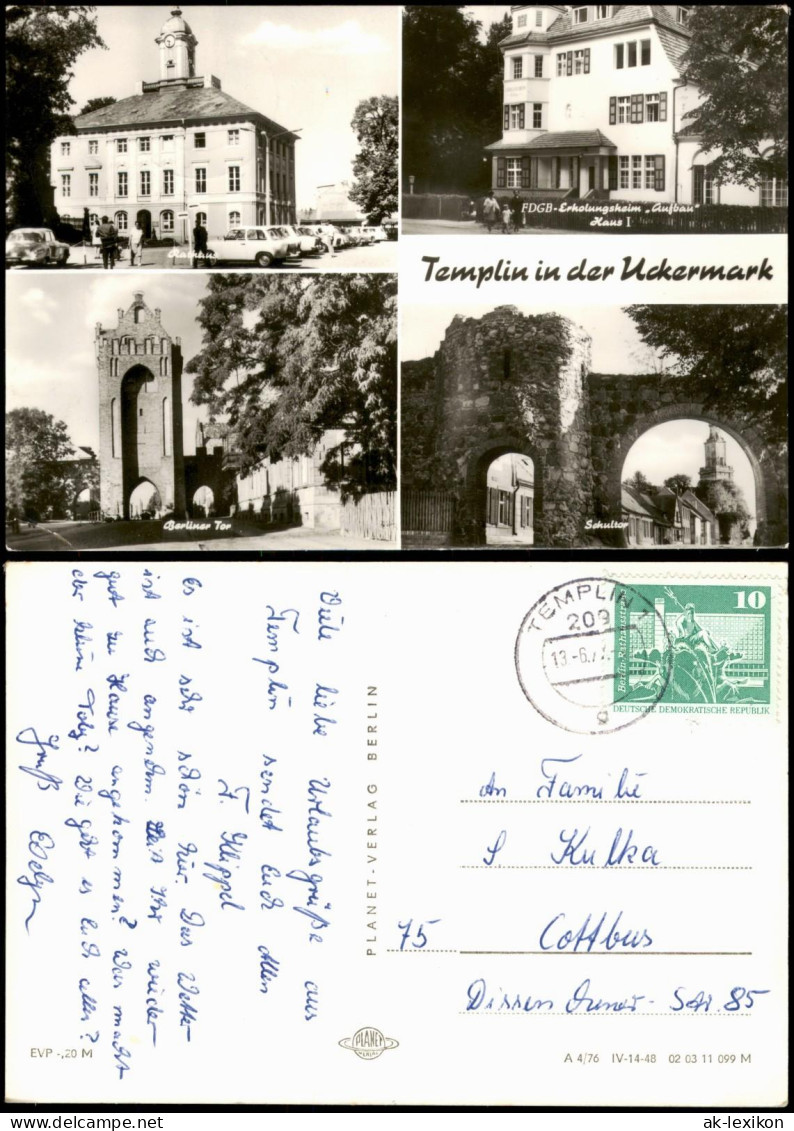 Rathaus
FDGB-Erholungsheim „Aufbau"
Haus I
Templin in der Uckermark
Berliner Tor
Schultor
Viele liebe Urlaubsgrüße aus
Templin sendet Euch allen
F. Klippel
Es ist sehr schön hier. Das Wetter
ist auch angenehm. Seid Ihr wieder
gut zu Hause angekommen? Was macht
der kleine? Wie geht es Euch allen?
Gruß Evelyn
PLANET-VERLAG BERLIN
TEMPLIN 1
209
13.-6.77
10
Berlin-Rathausstr.
DEUTSCHE DEMOKRATISCHE REPUBLIK
An Familie
S. Kulka
75 Cottbus
Str. 85
EVP -,20 M
PLANET
VERLAG
A 4/76 IV-14-48 02 03 11 099 M
ak-lexikon